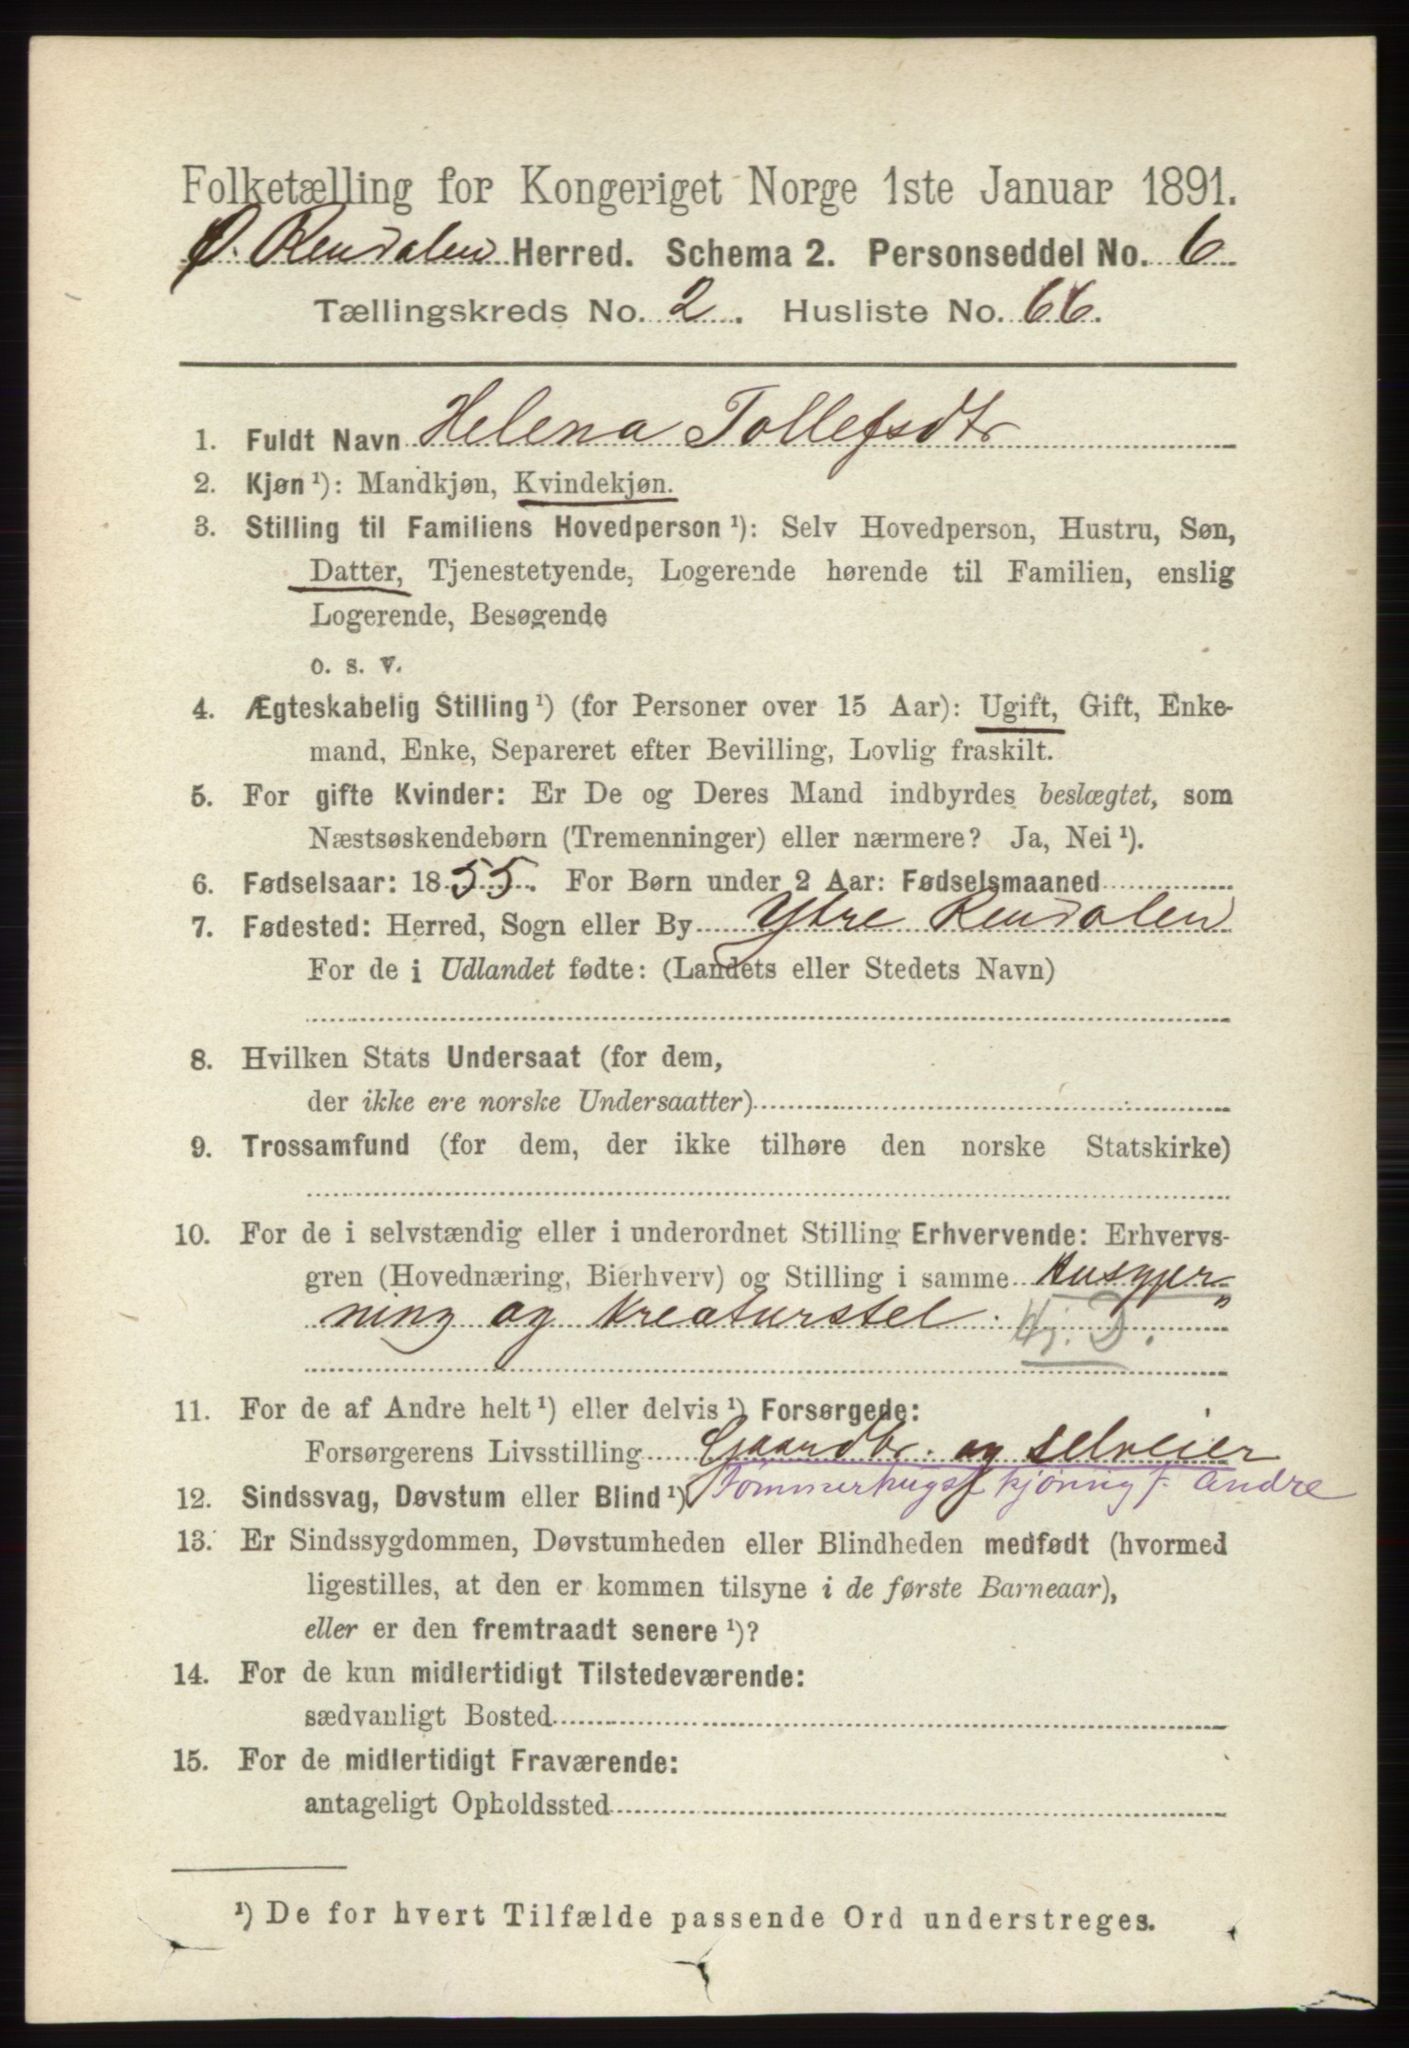 Folketælling for Kongeriget Norge 1ste Januar 1891.
Ø. Rendalen Herred. Schema 2. Personseddel No. 6
Tællingskreds No. 2. Husliste No. 66.
1. Fuldt Navn Helena Tollefsdtr
2. Kjøn ¹): Mandkjøn, Kvindekjøn.
3. Stilling til Familiens Hovedperson ¹): Selv Hovedperson, Hustru, Søn,
Datter, Tjenestetyende, Logerende hørende til Familien, enslig
Logerende, Besøgende
o. s. v.
4. Ægteskabelig Stilling ¹) (for Personer over 15 Aar): Ugift, Gift, Enke-
mand, Enke, Separeret efter Bevilling, Lovlig fraskilt.
5. For gifte Kvinder: Er De og Deres Mand indbyrdes beslægtet, som
Næstsøskendebørn (Tremenninger) eller nærmere? Ja, Nei ¹).
6. Fødselsaar: 1855. For Børn under 2 Aar: Fødselsmaaned
7. Fødested: Herred, Sogn eller By Ytre Rendalen
For de i Udlandet fødte: (Landets eller Stedets Navn)
8. Hvilken Stats Undersaat (for dem,
der ikke ere norske Undersaatter)
9. Trossamfund (for dem, der ikke tilhøre den norske Statskirke)
10. For de i selvstændig eller i underordnet Stilling Erhvervende: Erhvervs-
gren (Hovednæring, Bierhverv) og Stilling i samme Husgjer„
ning og Kreaturstel. Hj. D.
11. For de af Andre helt ¹) eller delvis ¹) Forsørgede:
Forsørgerens Livsstilling Gaardbr. og selveier
Tømmerhugst kjøring f. Andre
12. Sindssvag, Døvstum eller Blind ¹)
13. Er Sindssygdommen, Døvstumheden eller Blindheden medfødt (hvormed
ligestilles, at den er kommen tilsyne i de første Barneaar),
eller er den fremtraadt senere ¹)?
14. For de kun midlertidigt Tilstedeværende:
sædvanligt Bosted
15. For de midlertidigt Fraværende:
antageligt Opholdssted
¹) De for hvert Tilfælde passende Ord understreges.